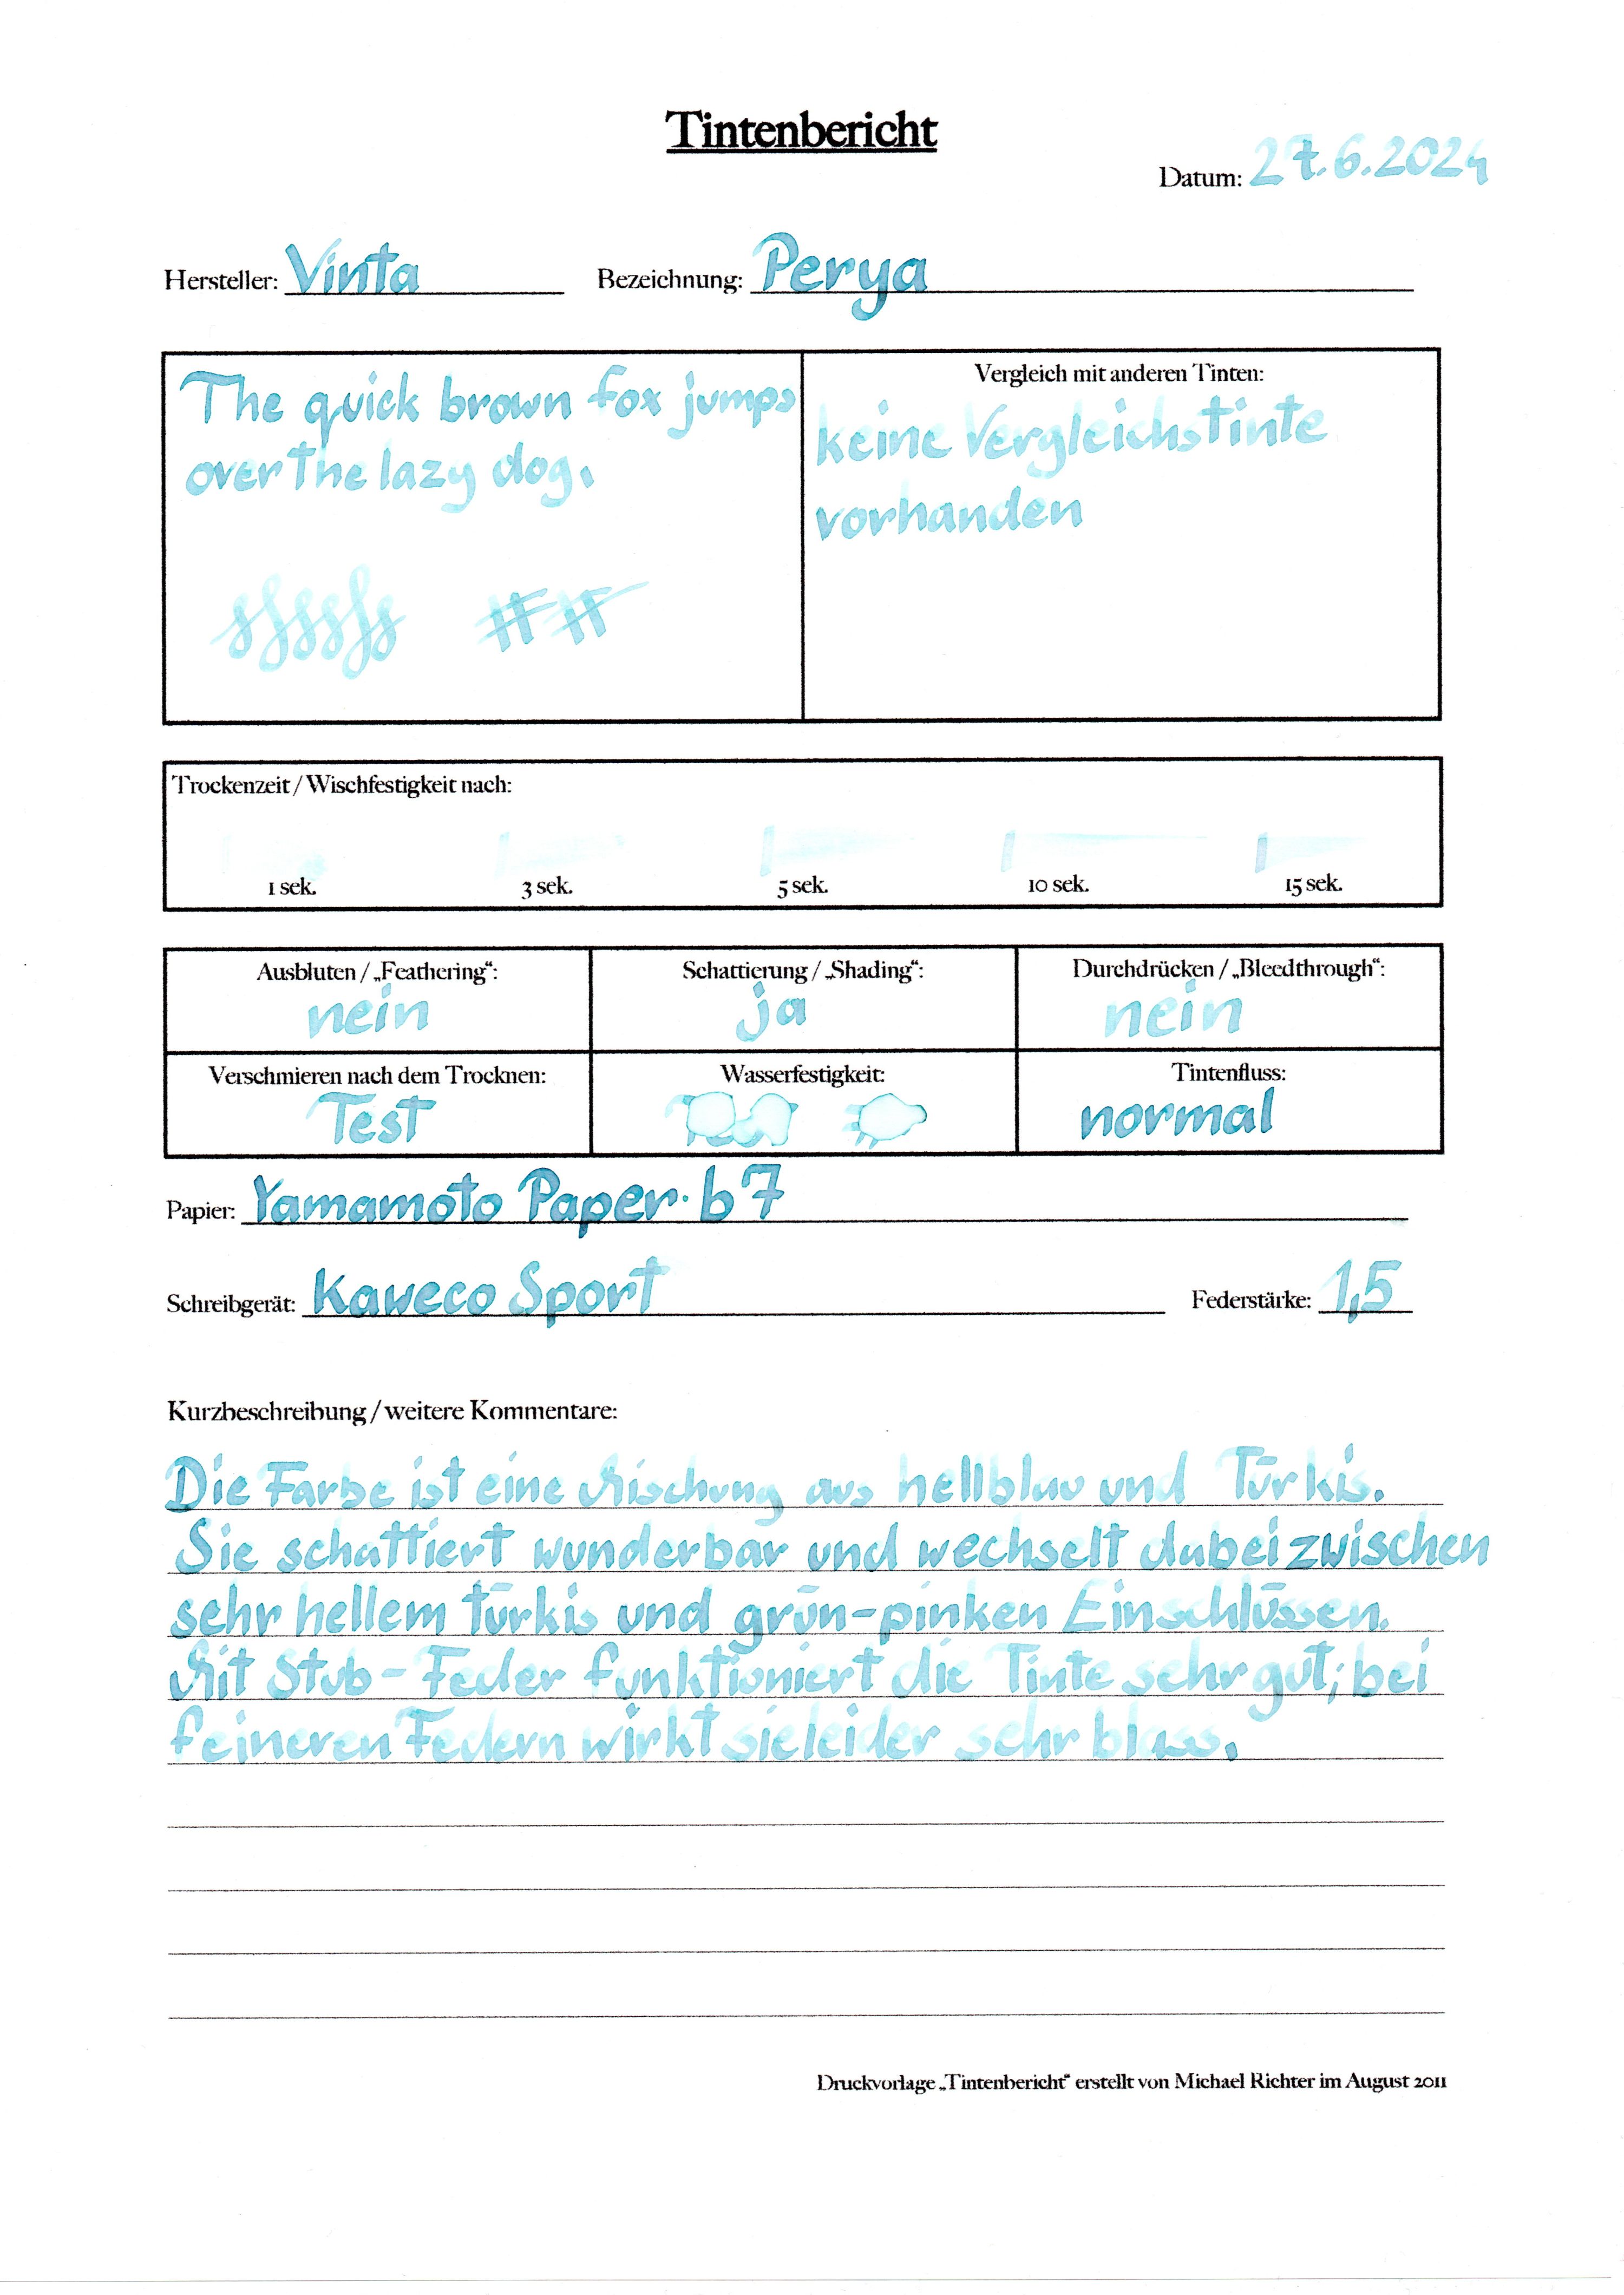 Tintenbericht
Datum: 27.6.2024
Hersteller: Vinta Bezeichnung: Perya
The quick brown fox jumps
over the lazy dog.
Vergleich mit anderen Tinten:
keine Vergleichstinte
vorhanden
Trockenzeit / Wischfestigkeit nach:
1 sek. 3 sek. 5 sek. 10 sek. 15 sek.
Ausbluten / „Feathering“: Schattierung / „Shading“: Durchdrücken / „Bleedthrough“:
nein ja nein
Verschmieren nach dem Trocknen: Wasserfestigkeit: Tintenfluss:
Test normal
Papier: Yamamoto Paper. b7
Schreibgerät: Kaweco Sport Federstärke: 1,5
Kurzbeschreibung / weitere Kommentare:
Die Farbe ist eine Mischung aus hellblau und Türkis.
Sie schattiert wunderbar und wechselt dabei zwischen
sehr hellem türkis und grün-pinken Einschlüssen.
Mit Stub-Feder funktioniert die Tinte sehr gut; bei
feineren Federn wirkt sie leider sehr blass.
Druckvorlage „Tintenbericht“ erstellt von Michael Richter im August 2011